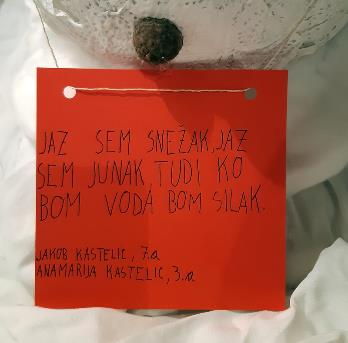 JAZ SEM SNEŽAK, JAZ
SEM JUNAK, TUDI KO
BOM VODA BOM SILAK.
JAKOB KASTELIC, 7.a
ANAMARIJA KASTELIC, 3.a